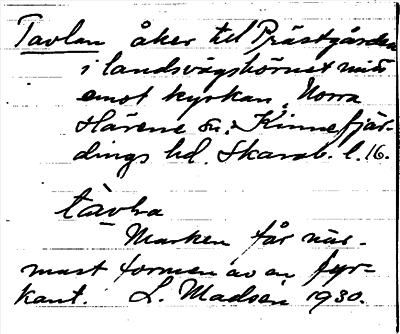 Tavlan åker till Prästgården
i landsvägshörnet mitt
emot kyrkan. Norra
Härene sn. Kinnefjär-
dings hd. Skarab. l. 16.
tàvla
Marken får när-
mast formen av en fyr-
kant. L. Madsén 1930.